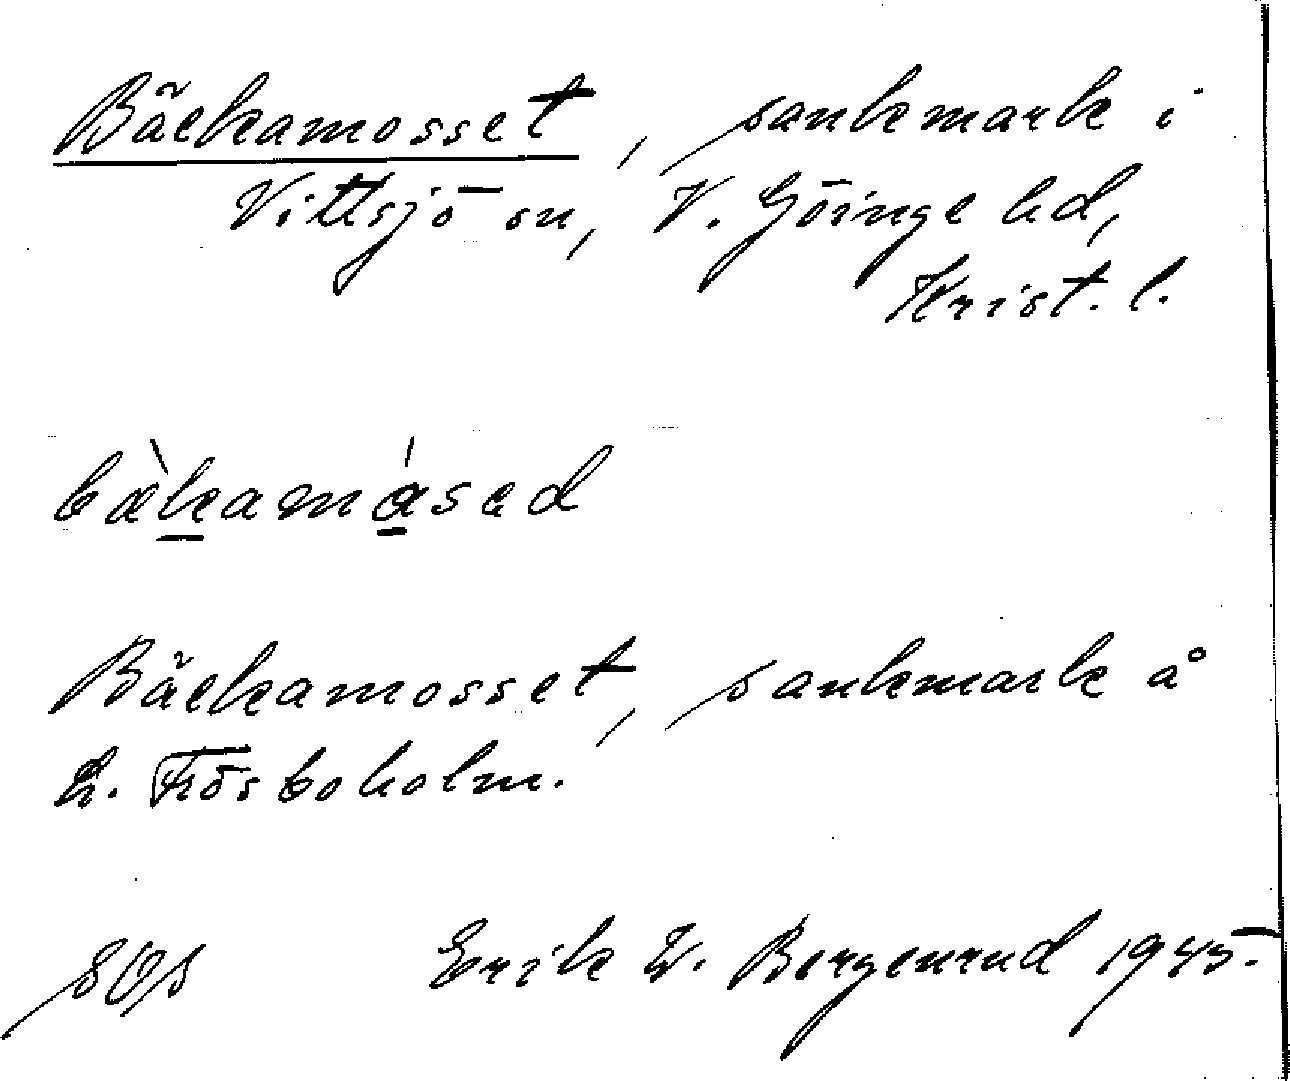 Bäckamosset, sankmark i
Vittsjö sn, V. Göinge hd,
Krist. l.
bæ̀kamásed
Bäckamosset, sankmark å
L. Frösboholm.
SOS Erik W. Bergenrud 1945.